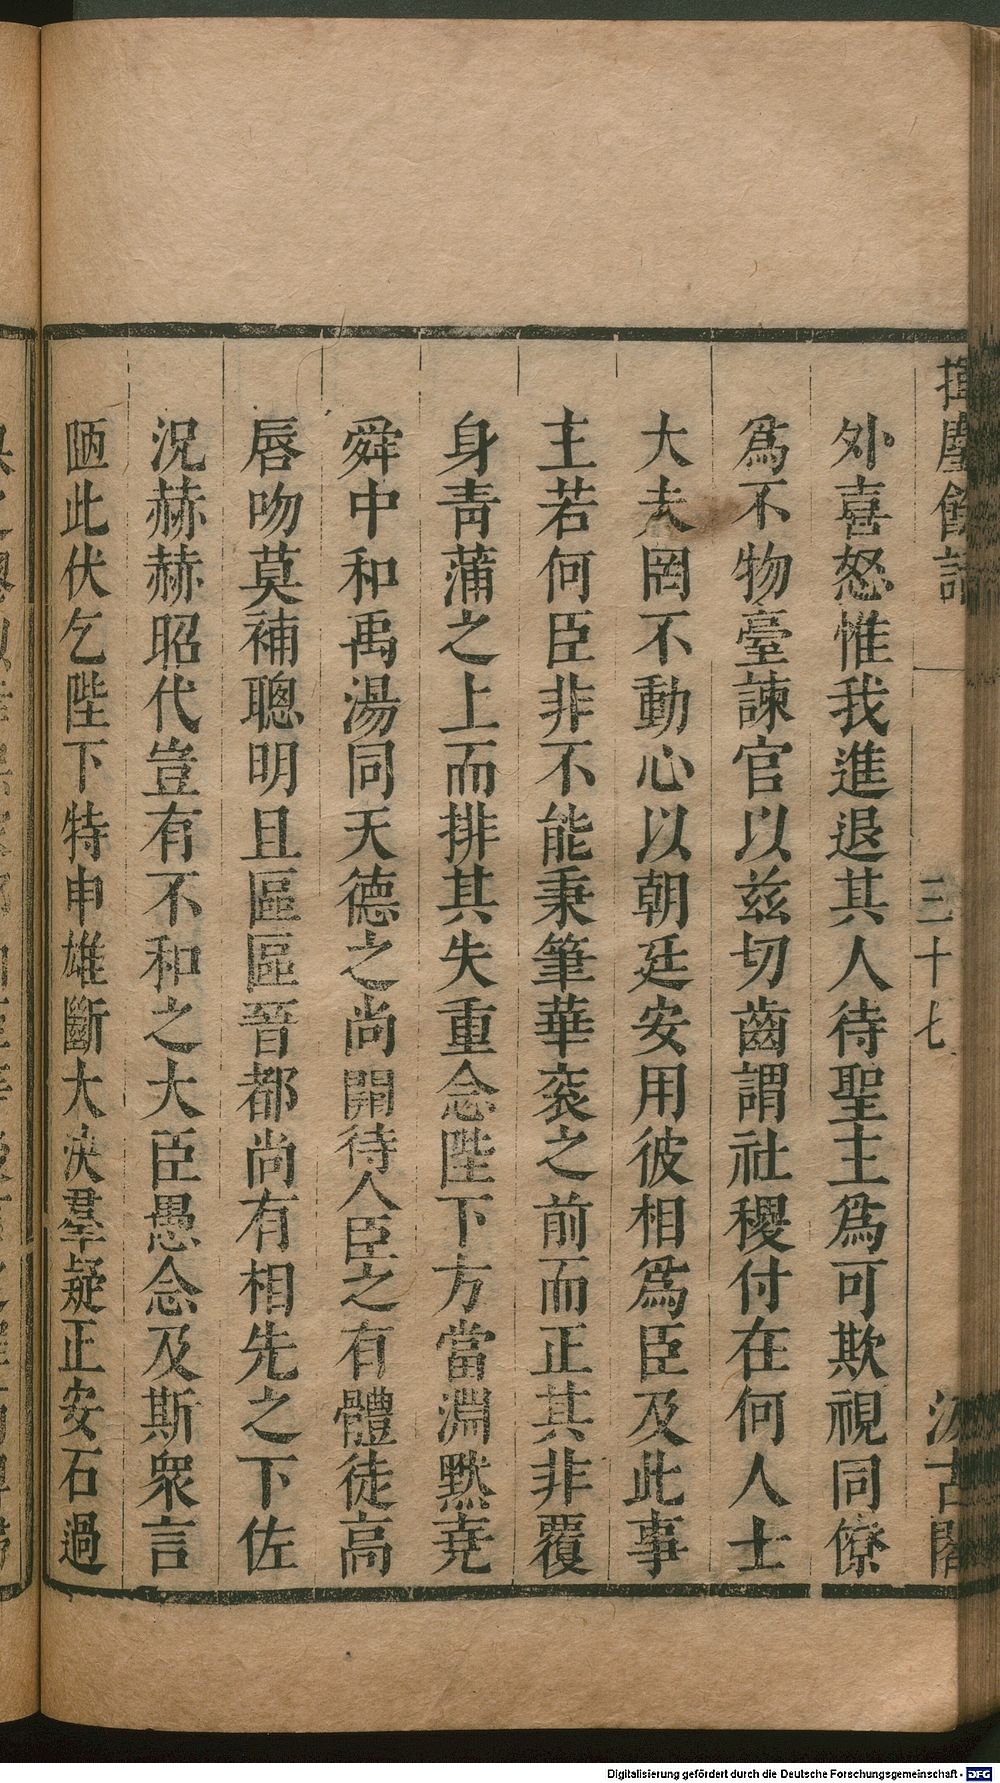 揮麈餘話
一
三十七
汲古閣
外喜怒惟我進退其人待聖主爲可欺視同僚
爲不物臺諫官以兹切齒謂社稷付在何人士
大夫罔不動心以朝廷安用彼相爲臣及此事
主若何臣非不能秉筆華衮之前而正其非覆
身青蒲之上而排其失重念陛下方當淵默堯
舜中和禹湯同天德之尚開待人臣之有體徒高
唇吻莫補聰明且區區晉都尚有相先之下佐
况赫赫昭代豈有不和之大臣愚念及斯衆言
陋此伏乞陛下特申雄斷大決羣疑正安石過
Digitalisierung gefördert durch die Deutsche Forschungsgemeinschaft - DFG